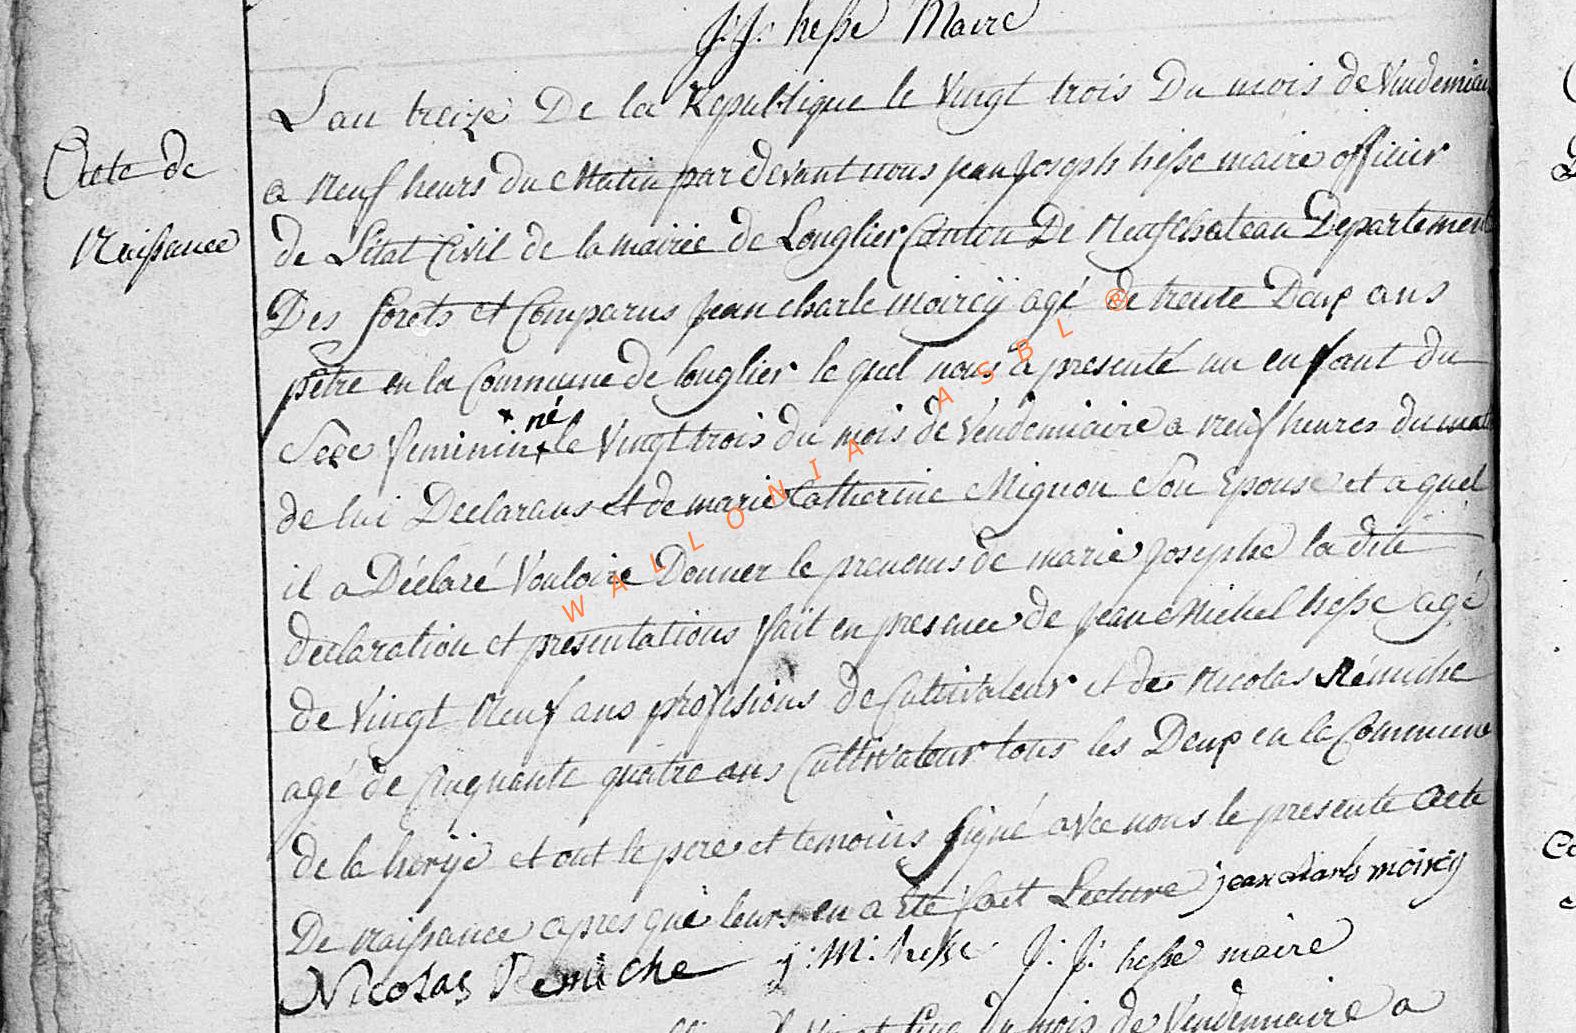 J: J: hesse Maire
Acte de
Naissance
L'an treize De la Republique le Vingt trois Du mois de Vindemiair
a Neuf heurs du Matin par devant nous jean joseph hesse maire officier
de L'état Civil de la mairie de Longlier Canton De Neufchateau Departement
Des forets et Comparus jean charle moircÿ agé de trente Deux ans
en la Commune de longlier le quel nous à presenté un enfant du
Sexe feminin le Vingt trois du mois de Vendemiaire a neuf heures du mat
né
de lui Declarans et de marie Catherine Mignon Son Epouse et a quel
il a Déclaré Vouloire Donner le prenoms de marie Josephe la dite
declaration et presentations fait en presence de jean Michel hesse agé
de Vingt Neuf ans profesions de Cultivateur et de Nicolas Rémiche
agé de Cinquante quatre ans Cultivateur tous les Deux en le Commune
de le herije et ont le pere et temoins signé avec nous le presente acte
De naissance apres que leurs en a Eté fait Lecture jean charls moircÿ
Nicolas Remiche j: M: hesse J: J: hesse maire
mois de Vendemiaire a
WALLONIA ASBL ®